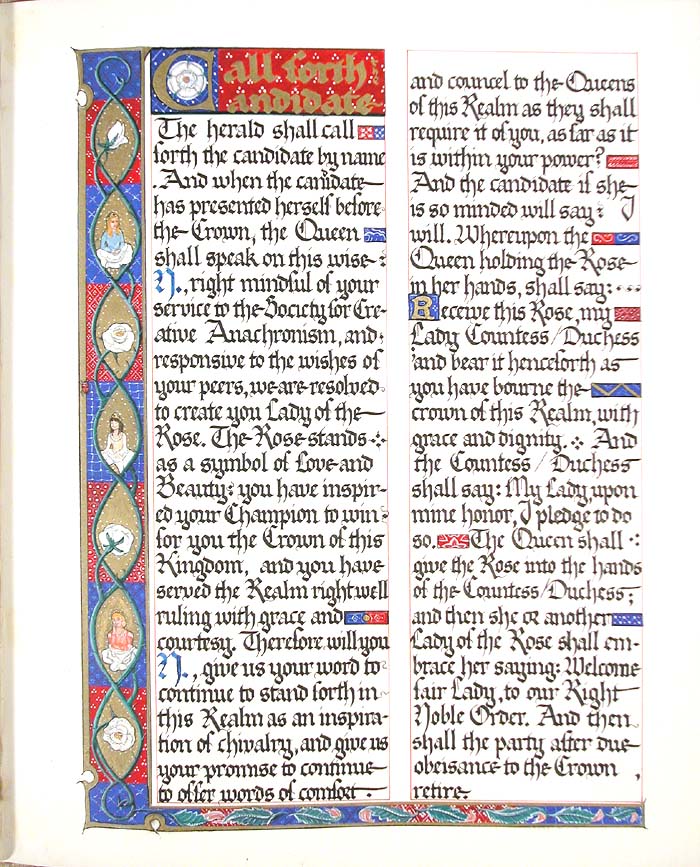 Call forth
Candidate
The herald shall call
forth the candidate by name
. And when the candidate
has presented herself before
the Crown, the Queen
shall speak on this wise :
N., right mindful of your
service to the Society for Cre-
ative Anachronism, and
responsive to the wishes of
your peers, we are resolved
to create you Lady of the
Rose. The Rose stands
as a symbol of Love and
Beauty: you have inspir-
ed your Champion to win
for you the Crown of this
Kingdom, and you have
served the Realm right well
ruling with grace and
courtesy. Therefore will you
N., give us your word to
continue to stand forth in
this Realm as an inspira-
tion of chivalry, and give us
your promise to continue
to offer words of comfort
and councel to the Queens
of this Realm as they shall
require it of you, as far as it
is within your power?
And the candidate if she
is so minded will say: I
will. Whereupon the
Queen holding the Rose
in her hands, shall say:
Receive this Rose, my
Lady Countess/Duchess
and bear it henceforth as
you have bourne the
crown of this Realm, with
grace and dignity. And
the Countess/Duchess
shall say: My Lady upon
mine honor, I pledge to do
so. The Queen shall
give the Rose into the hands
of the Countess/Duchess;
and then she or another
Lady of the Rose shall em-
brace her saying: Welcome
fair Lady, to our Right
Noble Order. And then
shall the party after due
obeisance to the Crown
retire.